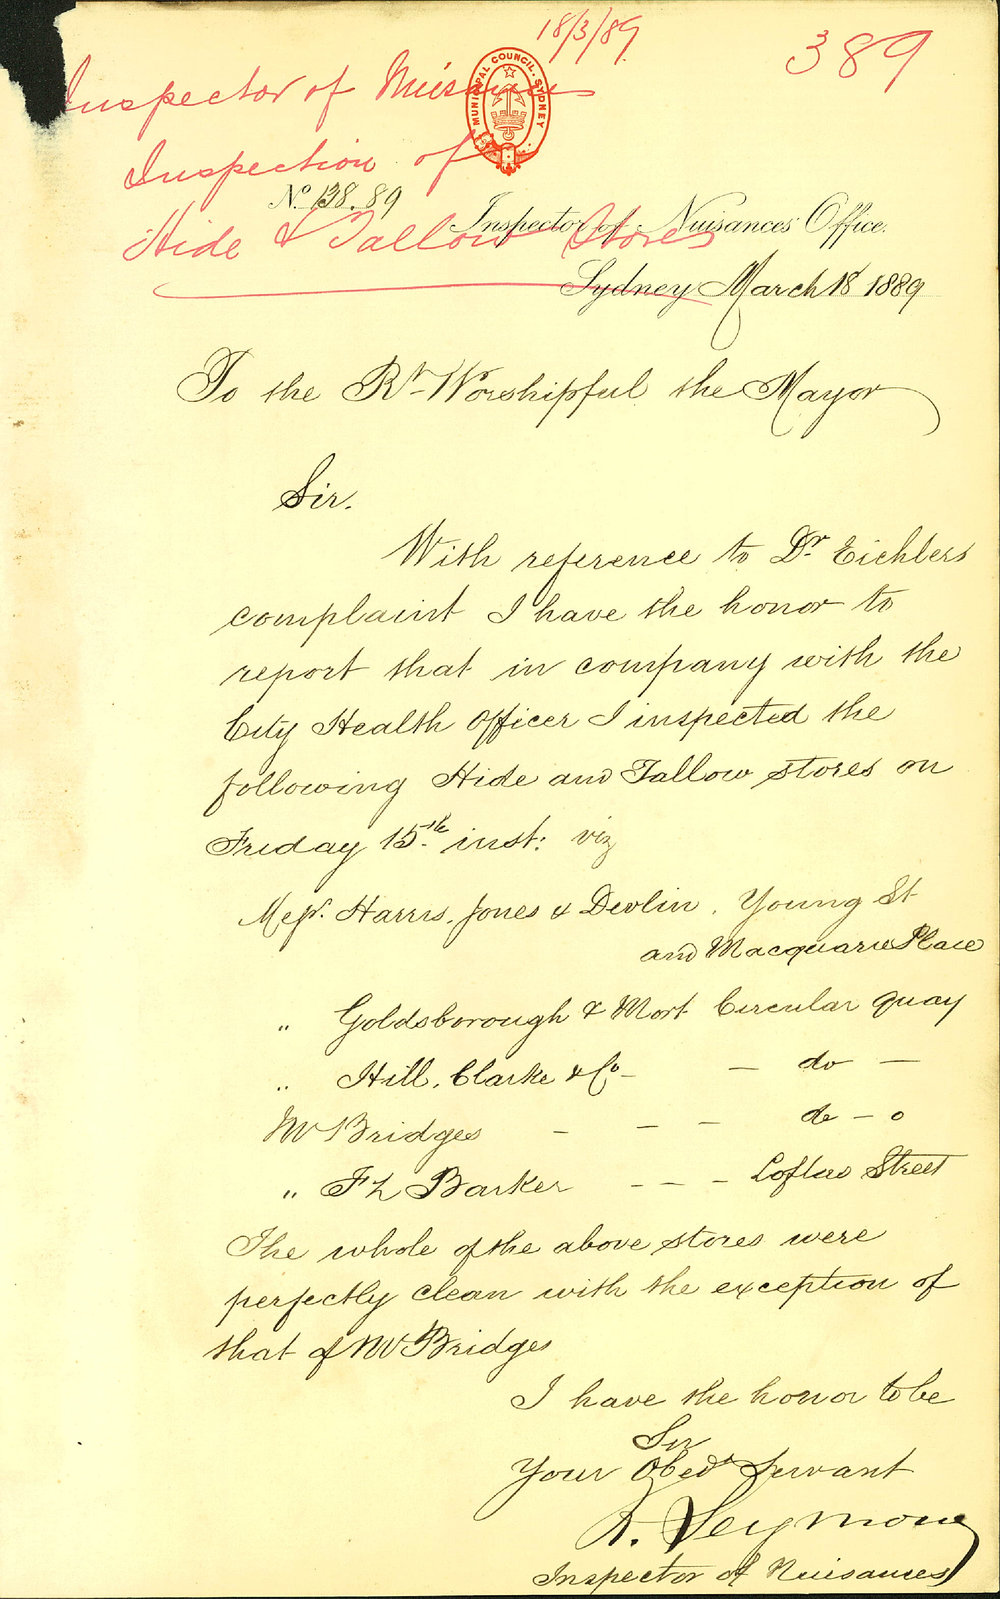 18/3/89
389
Inspector of Nuisances
MUNICIPAL COUNCIL. SYDNEY
Inspection of
No. 138.89
Inspector of Nuisances Office.
Hide & Tallow Stores
Sydney March 18 1889
To the Rt Worshipful the Mayor
Sir.
With reference to Dr Eichlers
complaint I have the honor to
report that in company with the
City Health Officer I inspected the
following Hide and Tallow stores on
Friday 15th inst: viz
Messrs. Harris, Jones & Devlin, Young St
and Macquarie Place
" Goldsborough & Mort Circular quay
" Hill, Clarke & Co - - do -
Mr Bridges - - - do - o
" F L Barker - - - Loftus Street
The whole of the above stores were
perfectly clean with the exception of
that of Mr Bridges
I have the honor to be
Sir
Your Obedt Servant
Seymour
Inspector of Nuisances